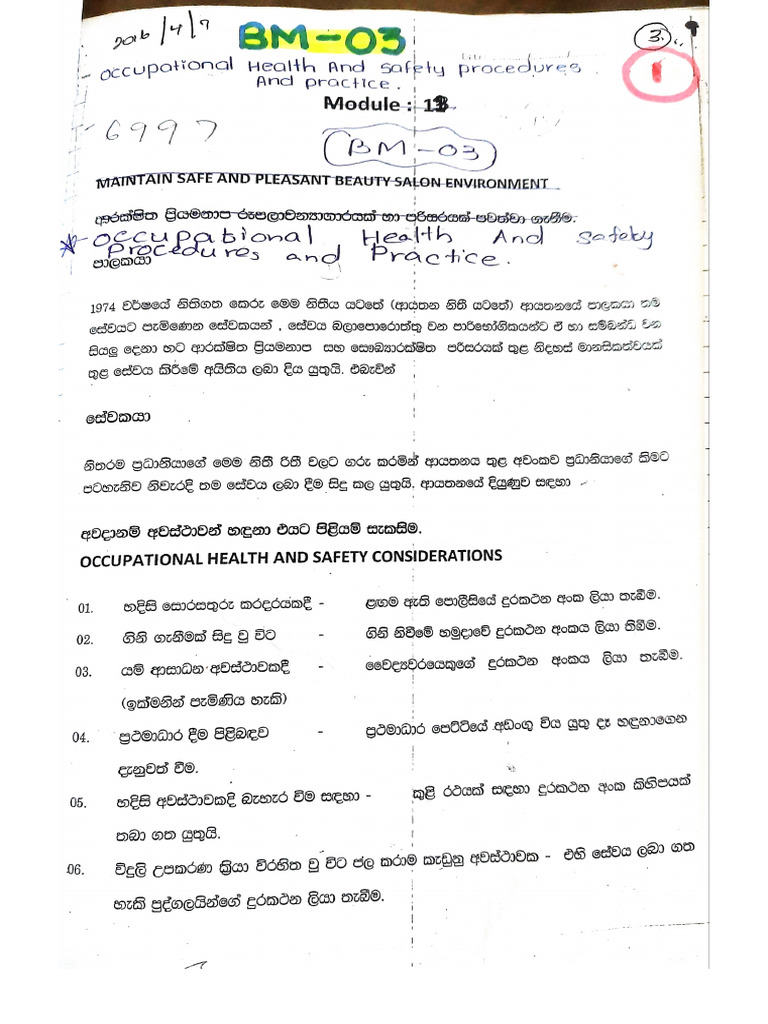 2016/4/7
BM-03
3.
1
Occupational Health And Safety procedures
And practice.
Module : 13
6997
BM-03
MAINTAIN SAFE AND PLEASANT BEAUTY SALON ENVIRONMENT
ආරක්ෂිත ප්‍රියමනාප රූපලාවන්‍යාගාරයක් හා පරිසරයක් පවත්වා ගැනීම.
Occupational Health And Safety
Procedures and Practice.
පාලකයා
1974 වර්ෂයේ නිතිගත කෙරු මෙම නිතීය යටතේ (ආයතන නිතී යටතේ) ආයතනයේ පාලකයා තම
සේවයට පැමිණෙන සේවකයන් , සේවය බලාපොරොත්තු වන පාරිභෝගිකයන්ට ඒ හා සම්බන්ධ වන
සියලු දෙනා හට ආරක්ෂිත ප්‍රියමනාප සහ සෞඛ්‍යාරක්ෂිත පරිසරයක් තුළ නිදහස් මානසිකත්වයක්
තුළ සේවය කිරීමේ අයිතිය ලබා දිය යුතුයි. එබැවින්
සේවකයා
නිතරම ප්‍රධානියාගේ මෙම නිතී රිතී වලට ගරු කරමින් ආයතනය තුළ අවංකව ප්‍රධානියාගේ කිමට
පටහැනිව නිවැරදි තම සේවය ලබා දීම සිදු කල යුතුයි. ආයතනයේ දියුණුව සඳහා
අවදානම් අවස්ථාවන් හඳුනා එයට පිළියම් සැකසිම.
OCCUPATIONAL HEALTH AND SAFETY CONSIDERATIONS
01. හදිසි සොරසතුරු කරදරයකදී - ළඟම ඇති පොලීසියේ දුරකථන අංක ලියා තැබීම.
02. ගිනි ගැනීමක් සිදු වු විට - ගිනි නිවීමේ හමුදාවේ දුරකථන අංකය ලියා තිබීම.
03. යම් ආසාධන අවස්ථාවකදී - වෛද්‍යවරයෙකුගේ දුරකථන අංකය ලියා තැබීම.
(ඉක්මනින් පැමිණිය හැකි)
04. ප්‍රථමාධාර දීම පිළිබඳව - ප්‍රථමාධාර පෙට්ටියේ අඩංගු විය යුතු දෑ හඳුනාගෙන
දැනුවත් වීම.
05. හදිසි අවස්ථාවකදි බැහැර විම සඳහා - කුළි රථයක් සඳහා දුරකථන අංක කිහිපයක්
තබා ගත යුතුයි.
06. විදුලි උපකරණ ක්‍රියා විරහිත වු විට ජල කරාම කැඩුනු අවස්ථාවක - එහි සේවය ලබා ගත
හැකි පුද්ගලයින්ගේ දුරකථන ලියා තැබීම.